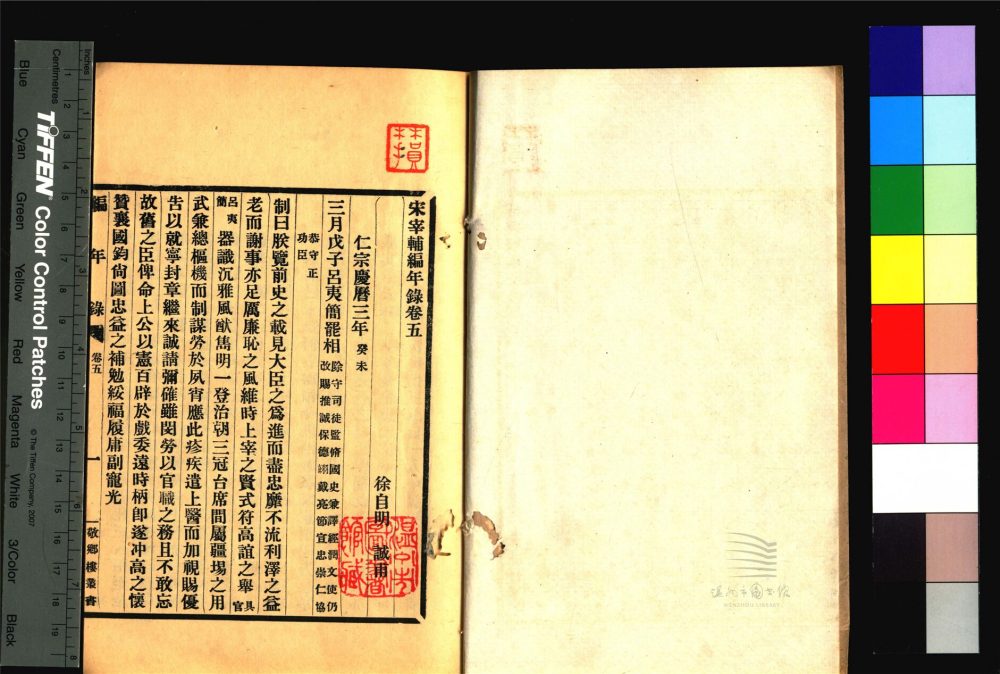 宋宰輔編年錄卷五
徐自明 誠甫
仁宗慶曆三年 癸未
三月戊子呂夷簡罷相 除守司徒監脩國史兼譯經潤文使仍
改賜推誠保德翊戴亮節宣忠崇仁協
恭守正
功臣
制曰朕覽前史之載見大臣之爲進而盡忠靡不流利澤之益
老而謝事亦足厲廉恥之風維時上宰之賢式符高誼之舉 具官
呂夷簡 器識沉雅風猷雋明一登治朝三冠台席間屬疆埸之用
武兼總樞機而制謀勞於夙宵應此疹疾遣上醫而加視賜優
告以就寧封章繼來誠請彌確雖閔勞以官職之務且不敢忘
故舊之臣俾命上公以憲百辟於戲委遠時柄卽遂冲高之懷
贊襄國鈞尙圖忠益之補勉綏福履庸副寵光
編年錄 卷五
一
敬鄉樓叢書
溫州市圖書館藏
溫州市圖書館
WENZHOU LIBRARY
Inches
Centimetres
1 2 3 4 5 6 7 8
1 2 3 4 5 6 7 8 9 10 11 12 13 14 15 16 17 18 19
TIFFEN Color Control Patches
© The Tiffen Company, 2007
Blue
Cyan
Green
Yellow
Red
Magenta
White
3/Color
Black